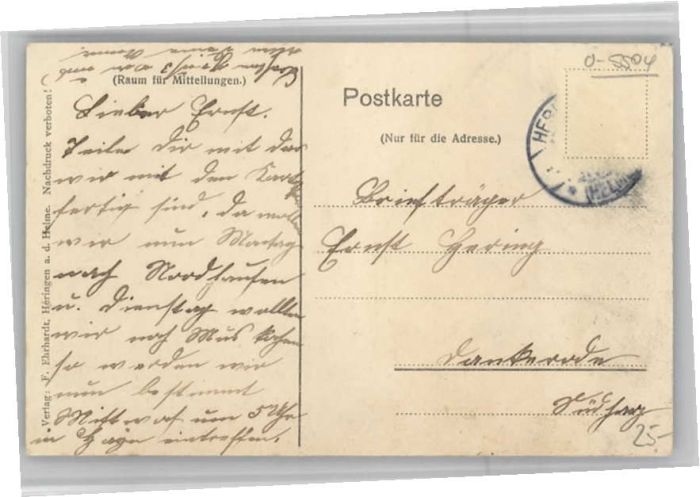 (Raum für Mitteilungen.)
Lieber Ernst.
Teile Dir mit das
wir mit den Kart
fertig sind, da wollen
wir nun Montag
nach Nordhausen
u. Dienstag wollen
wir noch Mus kochen
so werden wir
nun bestimmt
Mittwoch um 5 Uhr
in Hayn eintreffen.
Verlag: F. Ehrhardt, Heringen a. d. Helme. Nachdruck verboten!
Postkarte
(Nur für die Adresse.)
0-5504
HER
(HELME)
Briefträger
Ernst Hering
Dankerode
Südharz
25-